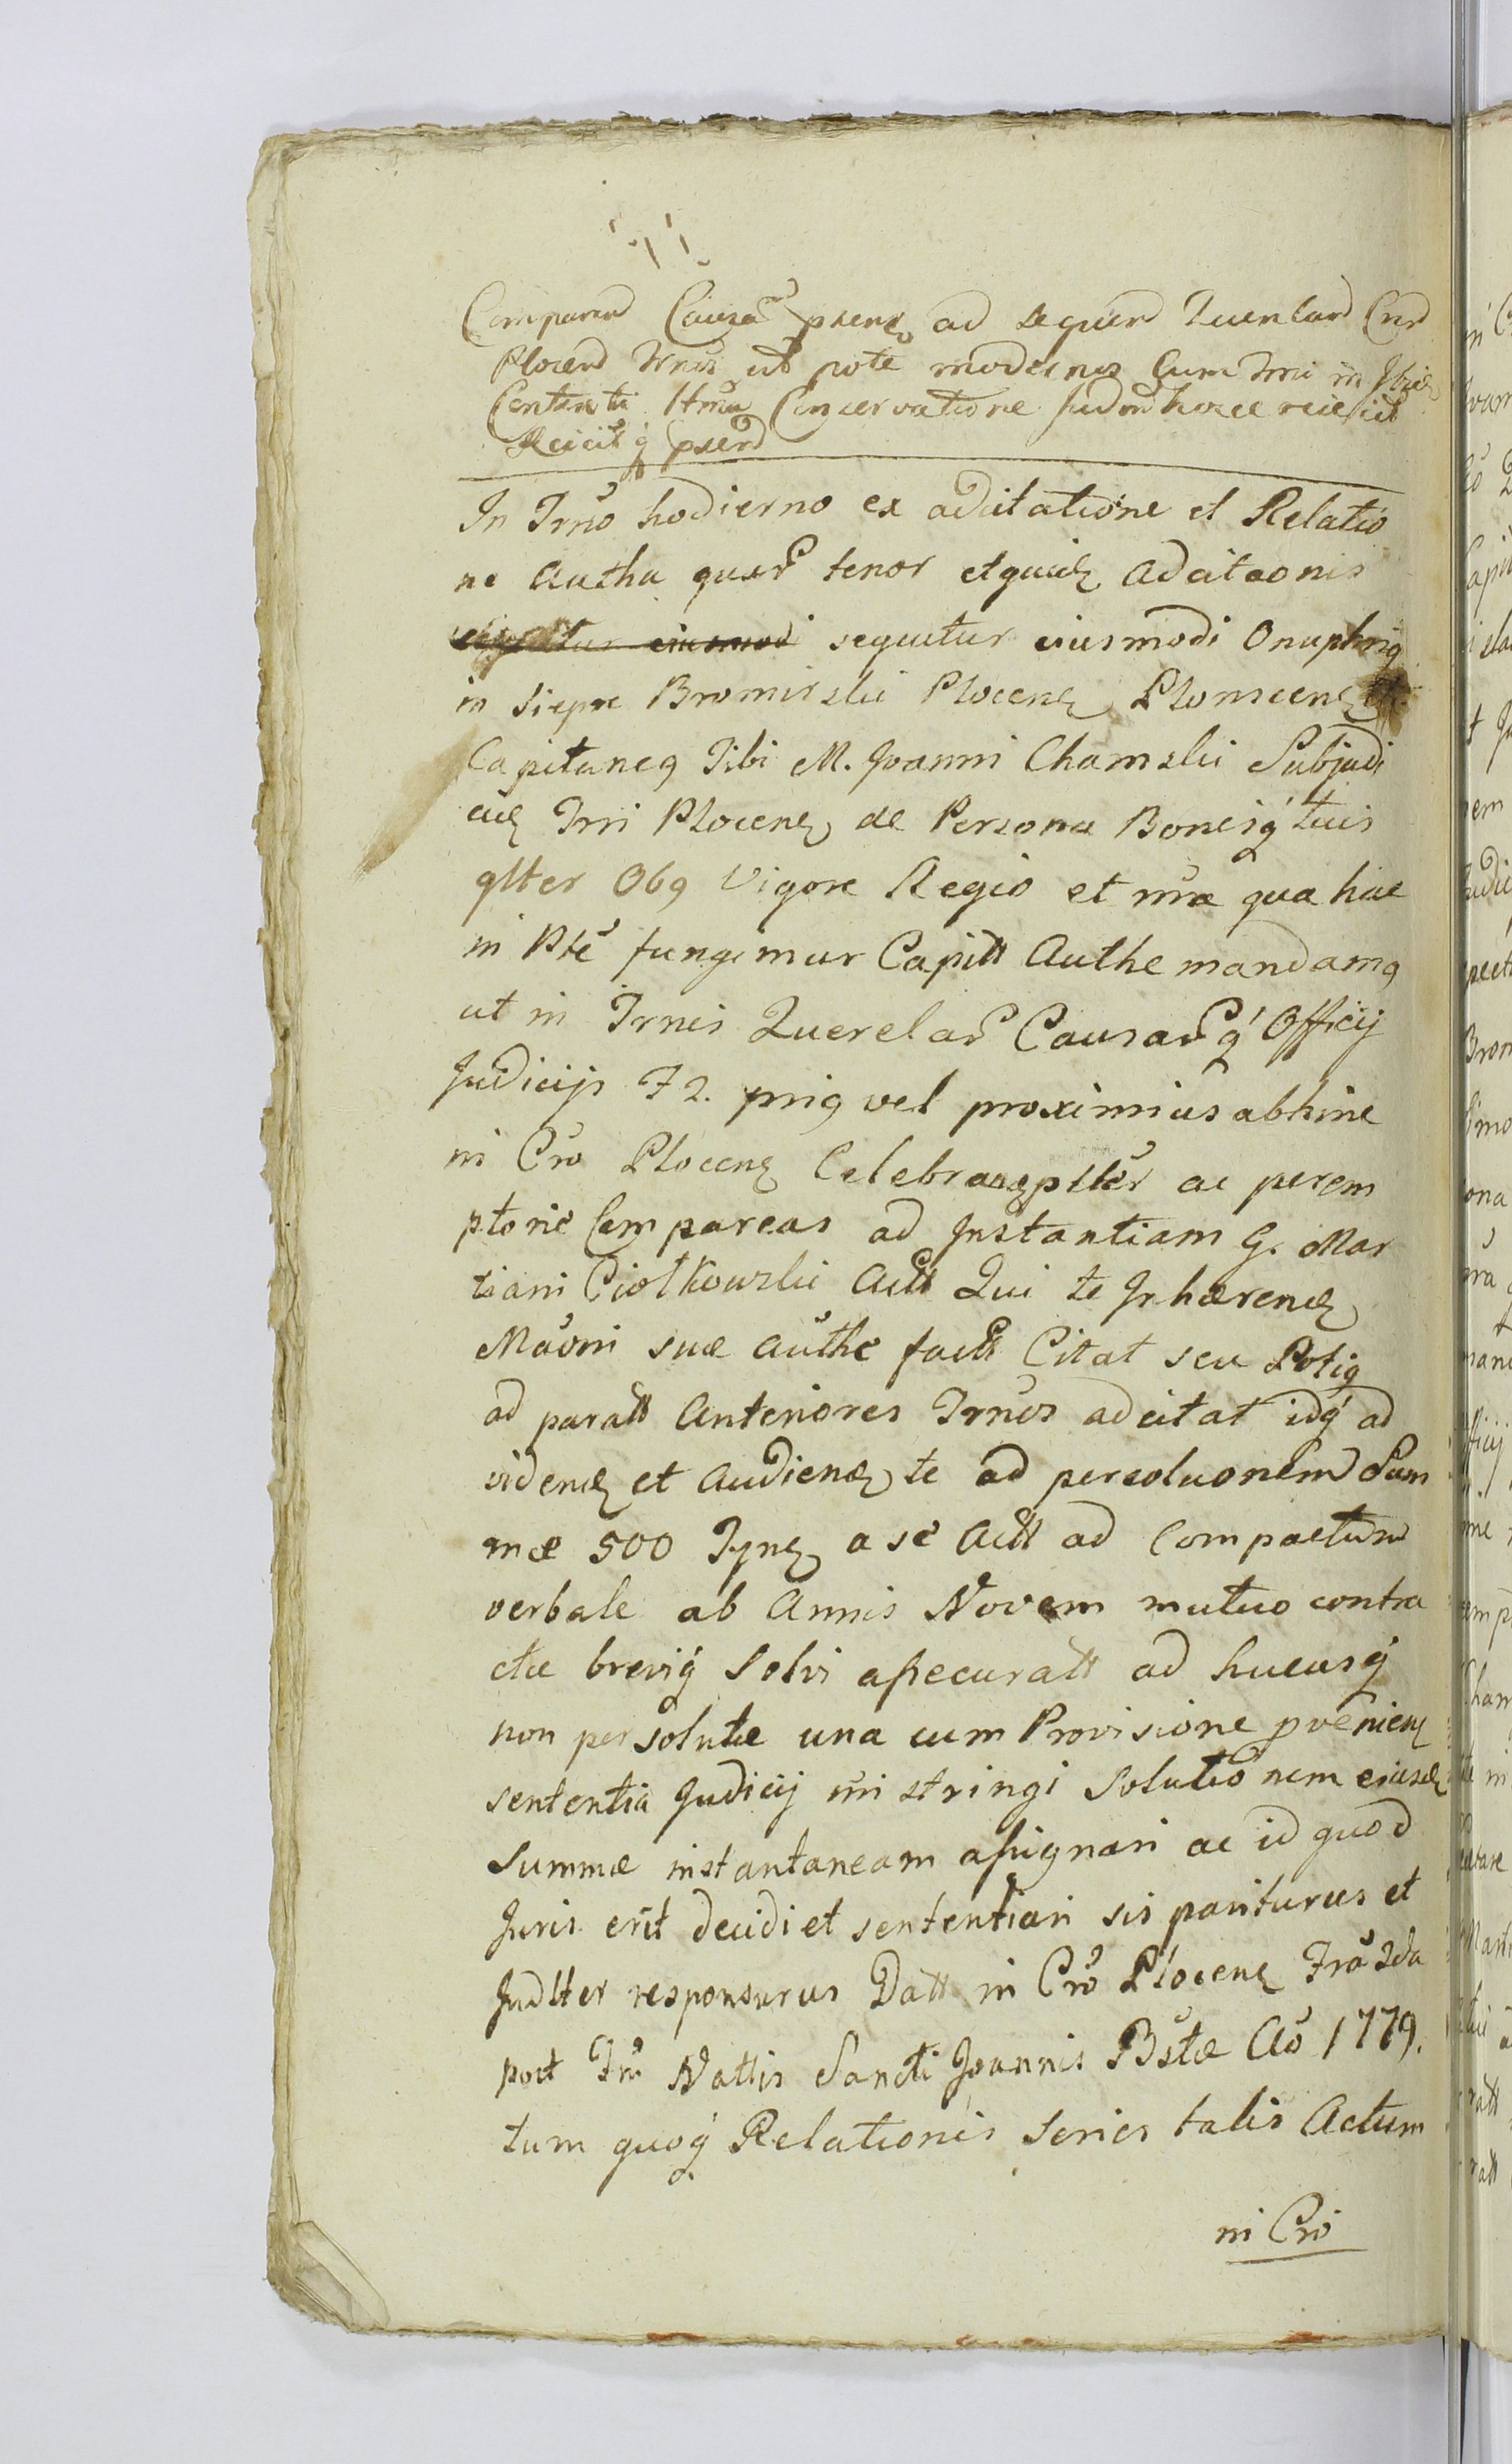 Comparend Causã psenẽ ad sequend Querelard Cnd
Plocend Trnis ut pote modernos Cum Trni in
Contenti Conservatione Judm hocce reiecit
Reicitq́ psend
In Trnõ hodierno ex adcitatione et Relatio
ne Autha quarũ tenor etquidẽ Adcitaonis
sequitur eiusmodi sequitur eiusmodi Onuphrig
in Siepre Bromirslii Plocenẽ Plonscenẽ
Capitaneg Tibi M. Joanni Chamslii Subjudi
ciẽ Trri Plocenẽ de Persona Bonisq́ tuis
glter Obg Vigore Regio et nrã qua hac
in Ptẽ fungimur Capitt Authe mandamg
ut in Trnis Querelarũ Causarũq́ Officij
Judicijs F2. prig vel proximius abhinc
in Crõ Plocenẽ Celebranẽ pltẽr ac perem
ptorie Compareas ad Jnstantiam G. Mar
tiani Ciołkowslii Actt Qui te Jnhærenẽ
Maõni suæ Authẽ factt Citat seu Potig
ad paratt Anteriores Trnos adcitat idq́ ad
videnẽ et Audienẽ te ad persoluonem Sum
mæ 500 Tynẽ a se Actt ad Compactum
verbale ab Annis Novem mutuo contra
ctæ breviq́ Solvi assecuratt ad hucusq́
non persolutæ una cum Provisione pvenienẽ
sententia Judicij nñi stringi Solutiõnem eiusdẽ
Summæ instantaneam assignari ac id quod
Juris erit decidi et sententiari sis pariturus et
Judtter responsurus Datt in Crõ Plocenẽ Frã 2da
post Frñ Nattis Sancti Joannis Bstæ Aõ 1779.
tum quoq́ Relationis Series talis Actum
in Crõ